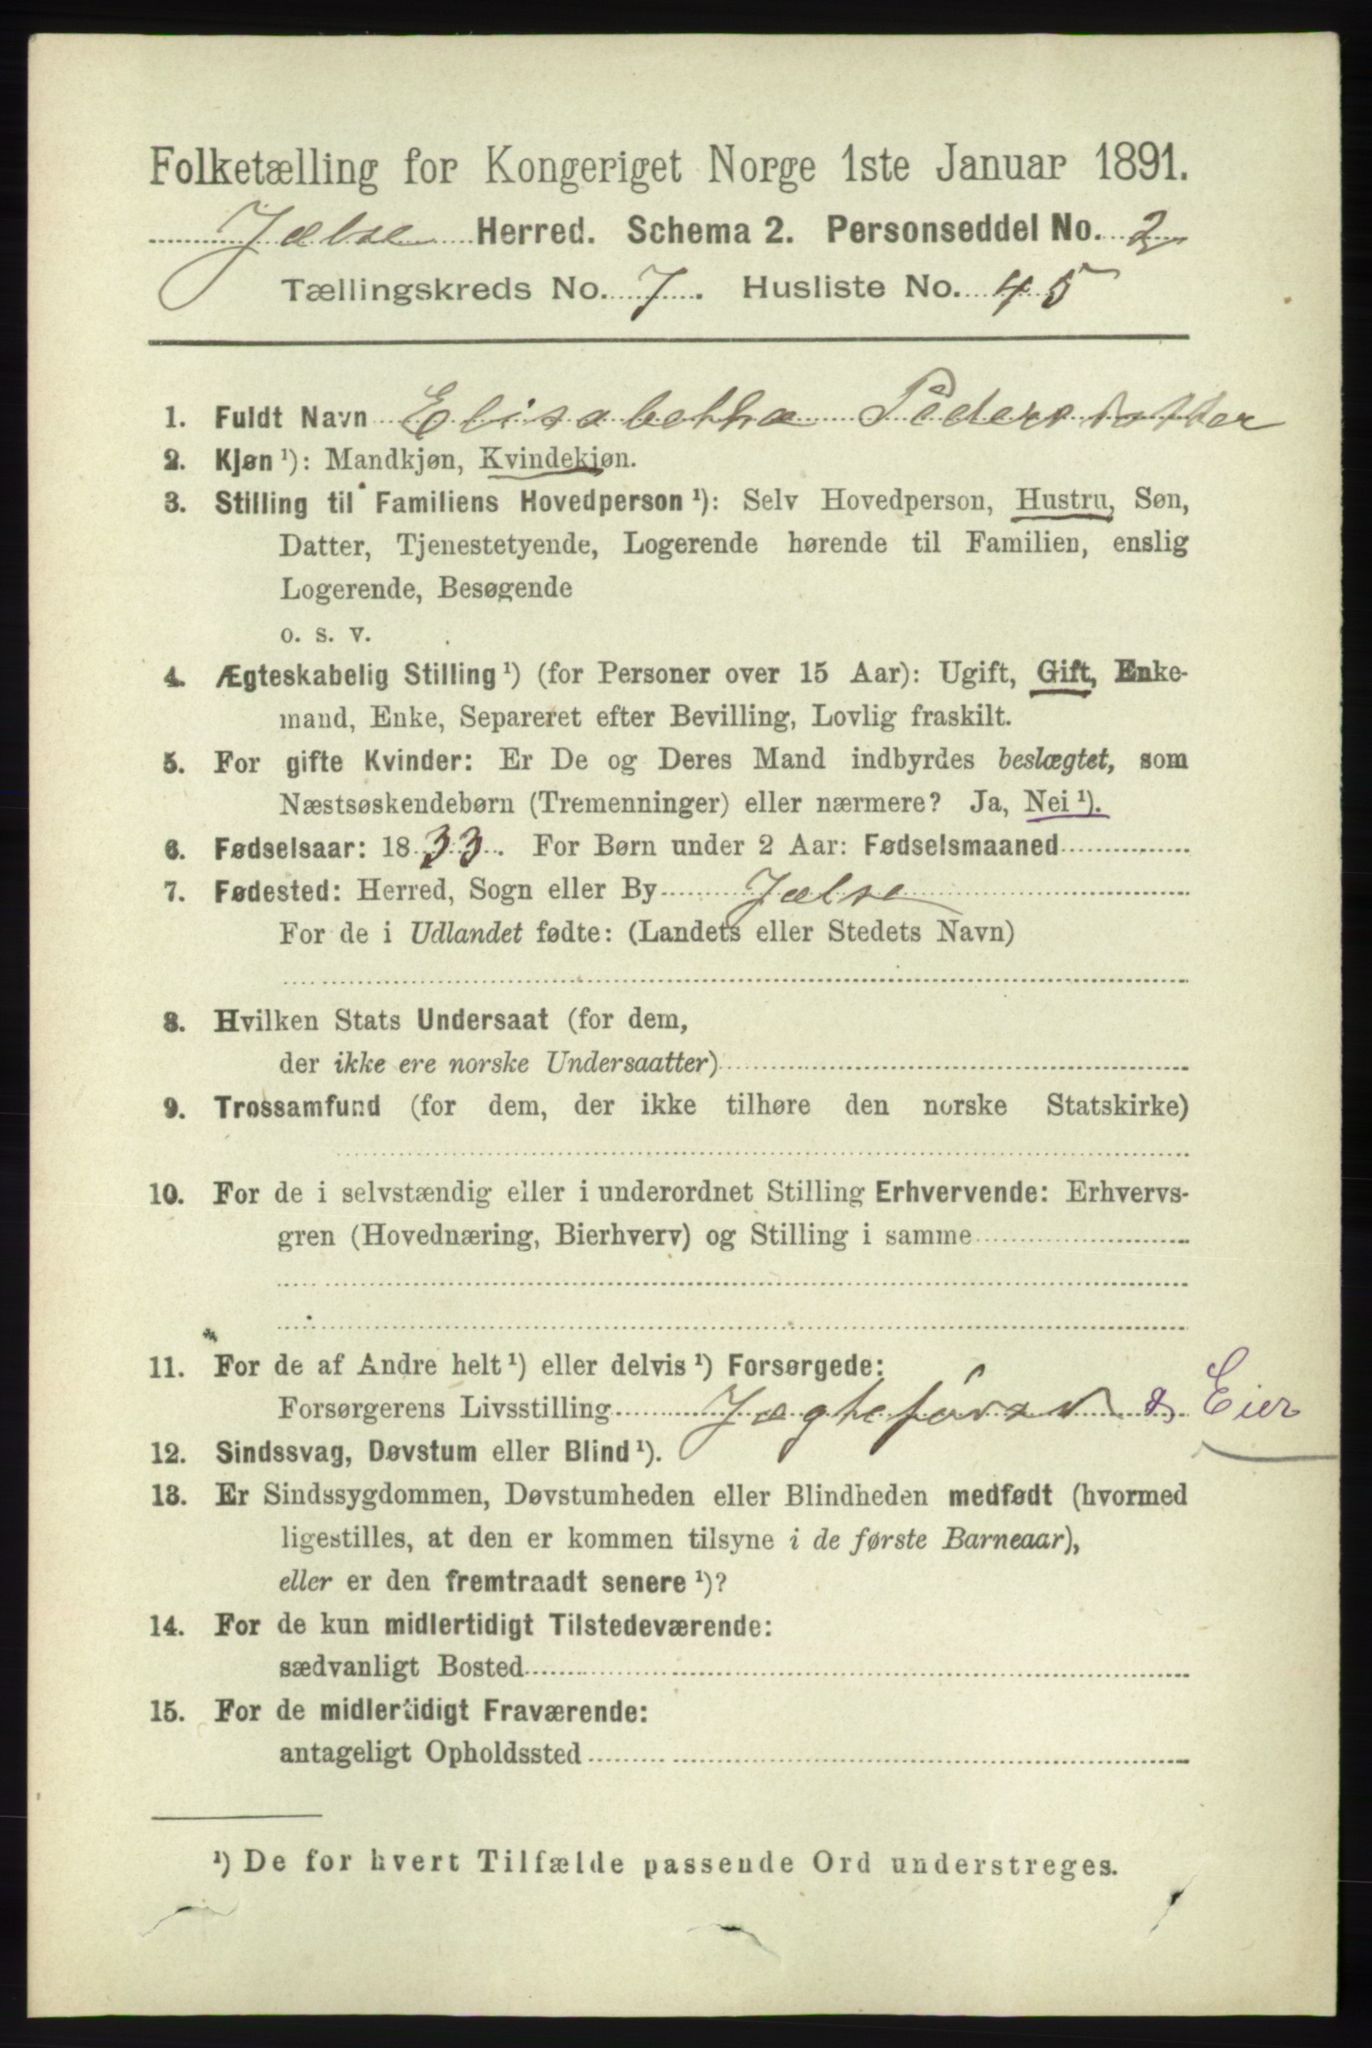 Folketælling for Kongeriget Norge 1ste Januar 1891.
Jælse Herred. Schema 2. Personseddel No. 2
Tællingskreds No. 7. Husliste No. 45
1. Fuldt Navn Elisabetha Pedersdatter
2. Kjøn ¹): Mandkjøn, Kvindekjøn.
3. Stilling til Familiens Hovedperson ¹): Selv Hovedperson, Hustru, Søn,
Datter, Tjenestetyende, Logerende hørende til Familien, enslig
Logerende, Besøgende
o. s. v.
4. Ægteskabelig Stilling ¹) (for Personer over 15 Aar): Ugift, Gift, Enke-
mand, Enke, Separeret efter Bevilling, Lovlig fraskilt.
5. For gifte Kvinder: Er De og Deres Mand indbyrdes beslægtet, som
Næstsøskendebørn (Tremenninger) eller nærmere? Ja, Nei ¹).
6. Fødselsaar: 1833. For Børn under 2 Aar: Fødselsmaaned
7. Fødested: Herred, Sogn eller By Jælse
For de i Udlandet fødte: (Landets eller Stedets Navn)
8. Hvilken Stats Undersaat (for dem,
der ikke ere norske Undersaatter)
9. Trossamfund (for dem, der ikke tilhøre den norske Statskirke)
10. For de i selvstændig eller i underordnet Stilling Erhvervende: Erhvervs-
gren (Hovednæring, Bierhverv) og Stilling i samme
11. For de af Andre helt ¹) eller delvis ¹) Forsørgede:
Forsørgerens Livsstilling Jægtefører & Eier
12. Sindssvag, Døvstum eller Blind ¹).
13. Er Sindssygdommen, Døvstumheden eller Blindheden medfødt (hvormed
ligestilles, at den er kommen tilsyne i de første Barneaar),
eller er den fremtraadt senere ¹)?
14. For de kun midlertidigt Tilstedeværende:
sædvanligt Bosted
15. For de midlertidigt Fraværende:
antageligt Opholdssted
¹) De for hvert Tilfælde passende Ord understreges.